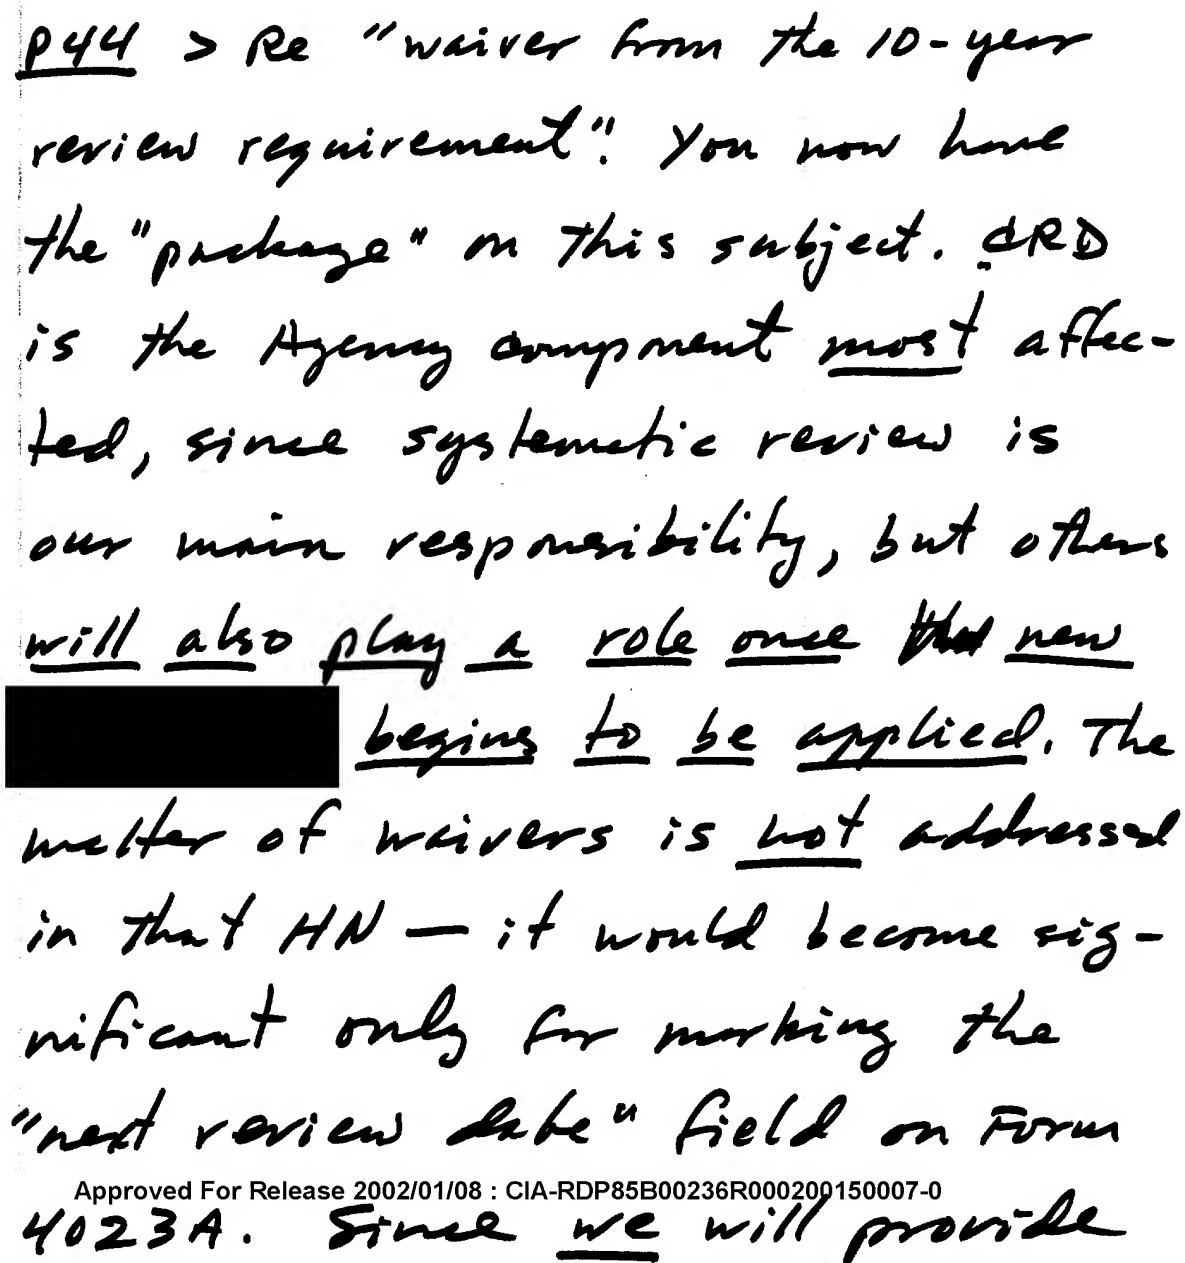 p44 > Re "waiver from the 10-year
review requirement". You now have
the "package" on this subject. CRD
is the Agency component most affec-
ted, since systematic review is
our main responsibility, but others
will also play a role once new
begins to be applied. The
matter of waivers is not addressed
in that HN — it would become sig-
nificant only for marking the
"next review date" field on Form
Approved For Release 2002/01/08 : CIA-RDP85B00236R000200150007-0
4023A. Since we will provide